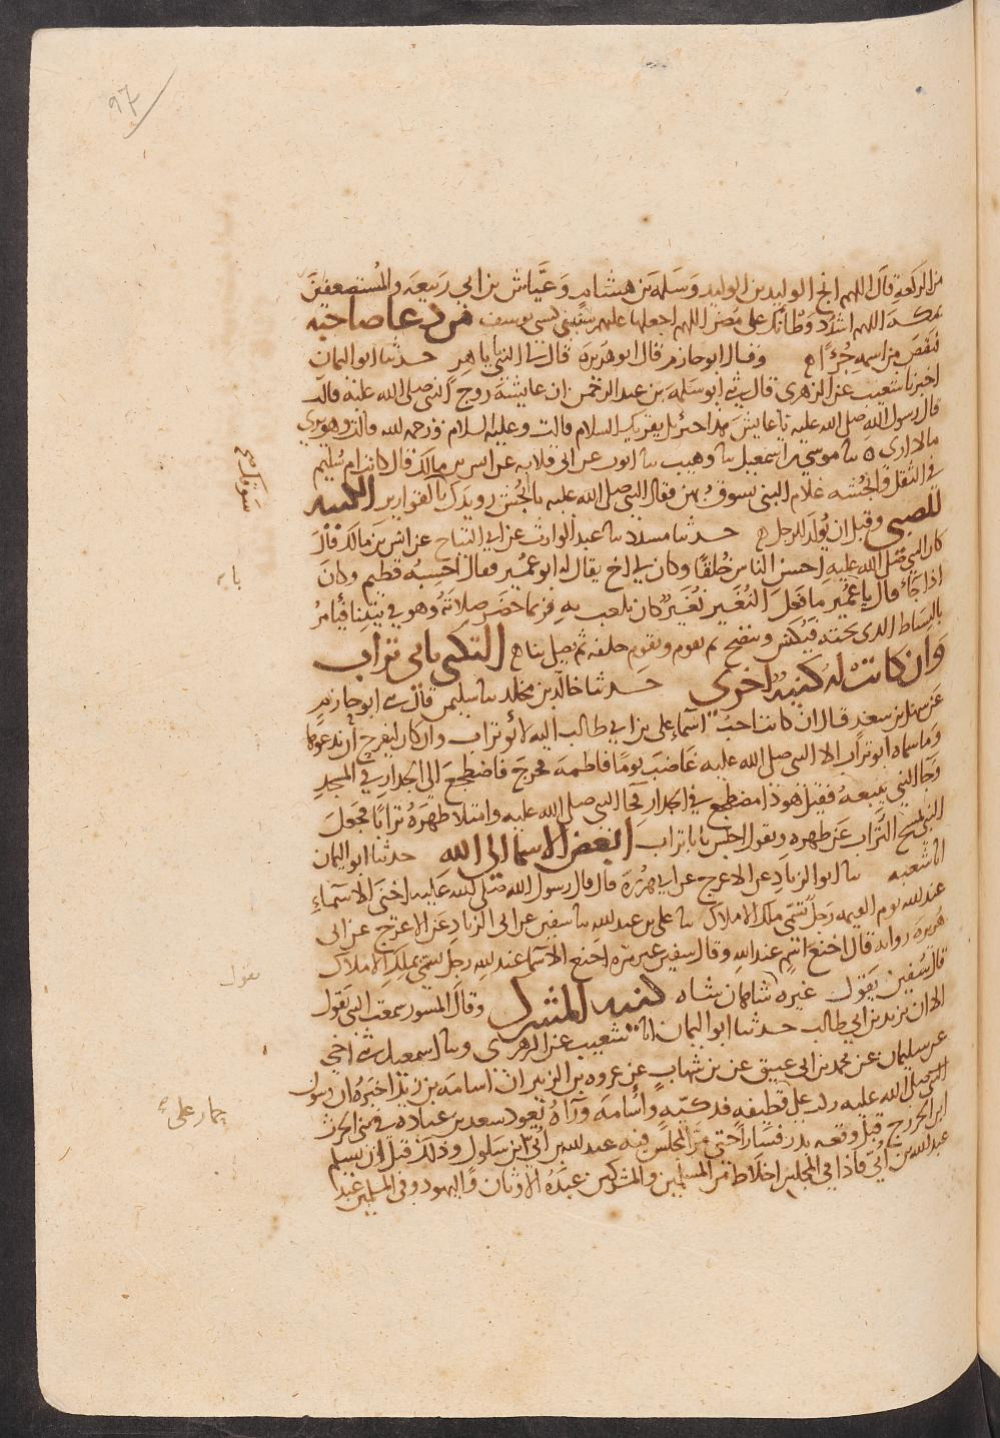 من الركعة قال اللهم انج الوليد بن الوليد وسلمة بن هشام وعياش بن ابي ربيعة والمستضعفين
بمكة اللهم اشدد وطأتك على مضر اللهم اجعلها عليهم سنين كسني يوسف من دعا صاحبه
فنقص من اسمه حرفا وقال ابو حازم قال ابو هريرة قال لي النبي يا هر حدثنا ابو اليمان
اخبرنا شعيب عن الزهري قال ثني ابو سلمة بن عبد الرحمن ان عايشة زوج النبي صلى الله عليه قالت
قال رسول الله صلى الله عليه يا عايش هذا جبرئيل يقريك السلام قالت وعليه السلام ورحمه لله قالت وهو يرى
ما لا ارى نا موسى بن اسمعيل نا وهيب نا ايوب عن ابي قلابه عن انس بن مالك قال كانت ام سليم
في الثقل وانجشه غلام النبي يسوق بهن فقال النبي صلى الله عليه يا انجش رويدك بالقوارير الكنيه
للصبي وقبل ان يولد للرجل حدثنا مسدد نا عبد الوارث عن ابي التياح عن انس بن مالك قال
كان النبي صلى الله عليه احسن الناس خلقا وكان لي اخ يقال له ابو عمير قال احسبه فطيم وكان
اذا جاء قال يا عمير ما فعل النغير نغير كان يلعب به فربما حضر صلاته وهو في بيتنا فيأمر
بالبساط الذي تحته فيكنس وينضح ثم يقوم ونقوم خلفه ثم يصلي بنا التكني بابي تراب
وان كانت له كنية اخرى حدثنا خالد بن مخلد نا سليمن قال ثني ابو حازم
عن سهل بن سعد قال ان كانت احب اسماء علي بن ابي طالب اليه لأبو تراب وان كان ليفرح ان ندعوها
وما سماه ابو تراب الا النبي صلى الله عليه غاضب يوما فاطمة فخرج فاضطجع الى الجدار في المسجد
وجا النبي يتبعه فقيل هوذا مضطجع في الجدار فجا النبي صلى الله عليه وامتلا ظهره ترابا فجعل
النبي يمسح التراب عن ظهره ويقول اجلس يا با تراب ابغض الاسما الى الله حدثنا ابو اليمان
انا شعيب نا ابو الزناد عن الاعرج عن ابي هريرة قال قال رسول الله صلى الله عليه اخنى الاسماء
عند لله يوم القيمه رجل تسمى ملك الاملاك نا علي بن عبد لله نا سفين عن ابي الزناد عن الاعرج عن ابي
هريرة روايه قال اخنع اسم عند الله وقال سفين غير مرة اخنع الاسما عند لله رجل تسمى بملك الاملاك
قال سفين يقول غيره شاهان شاه كنيه المشرك وقال المسور سمعت النبي يقول
الا ان يريد بن ابي طالب حدثنا ابو اليمان انا شعيب عن الزهري ونا اسمعيل ثني اخي
عن سليمان عن محمد بن ابي عتيق عن بن شهاب عن عروه بن الزبير ان اسامة بن زيد اخبره ان رسول
الله صلى الله عليه ركب على قطيفه فدكيه وأسامة وراه يعود سعد بن عباده في بني الحرث
ابن الخزرج قبل وقعه بدر فسارا حتى مرا بمجلس فيه عبد لله بن ابي ابن سلول وذلك قبل ان يسلم
عبد لله بن ابي فاذا في المجلس اخلاط من المسلمين والمشركين عبدة الاوثان واليهود وفي المسلمين عبد
سوقك صح
باب
يقول
حمار على
٩٧